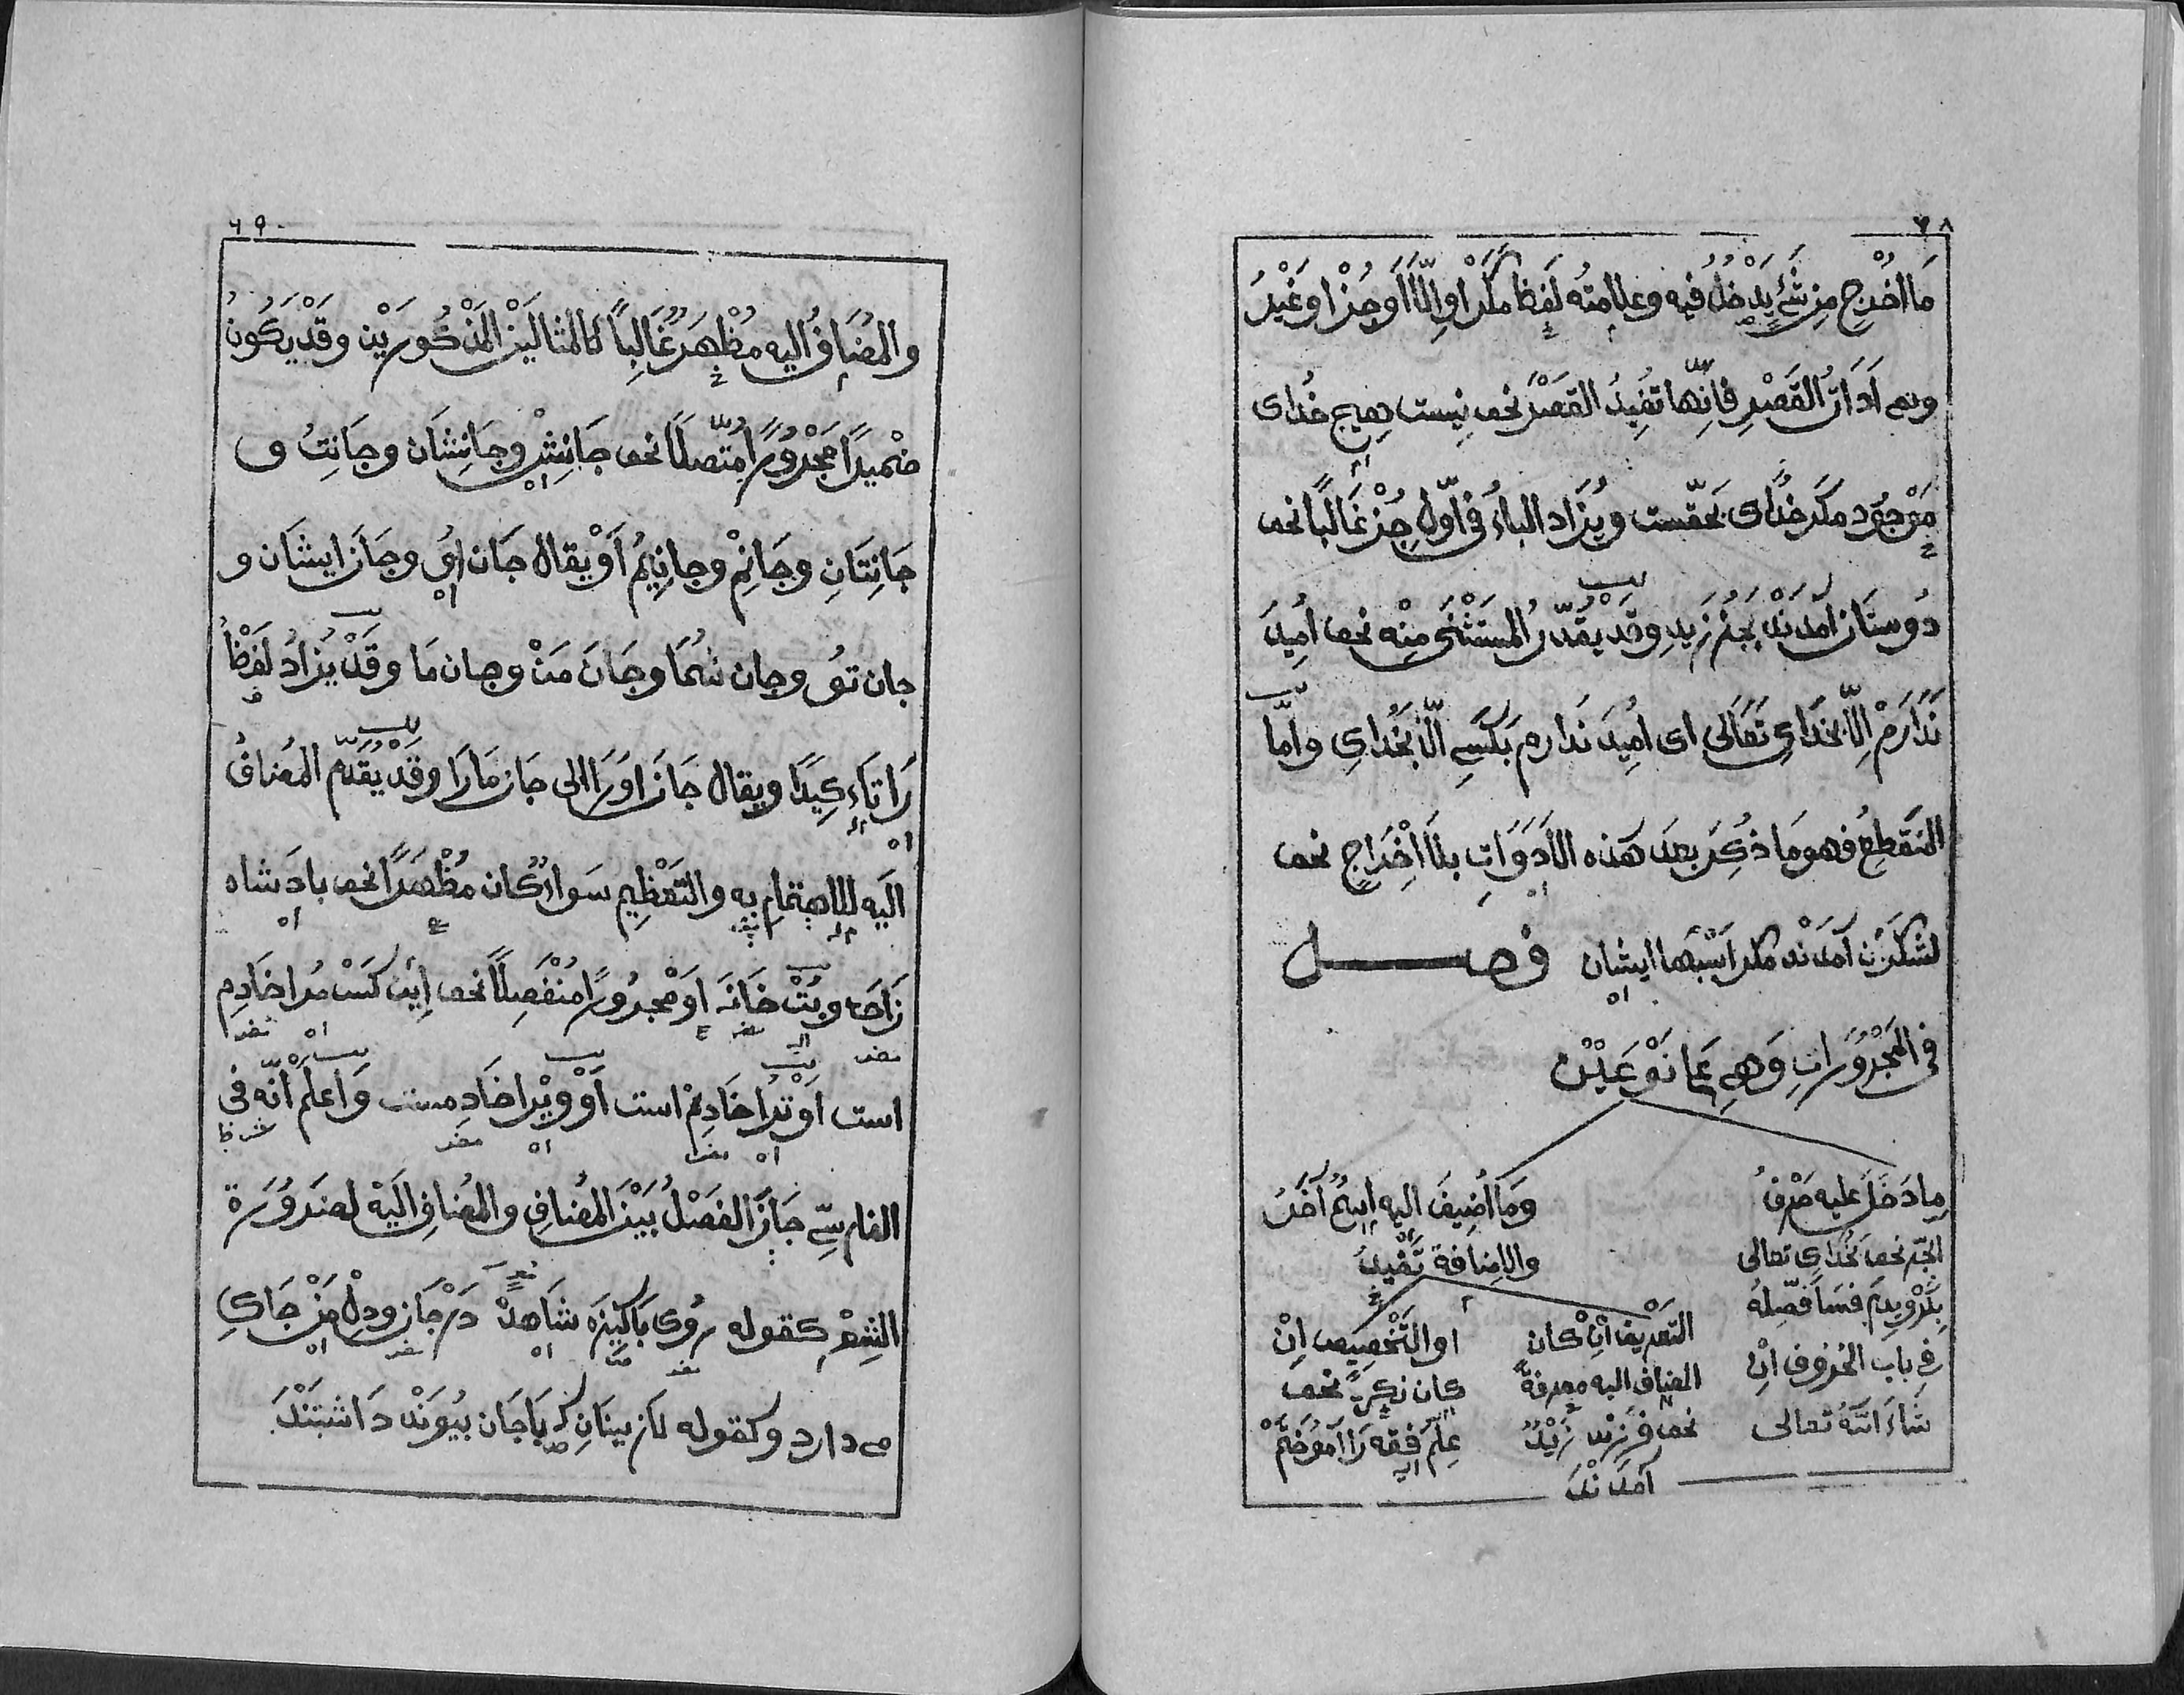 ٦٨
مَا اُخْرِجَ مِنْ شَيْءٍ يَدْخُلُ فيه وعلامته لَفظ مَكَرْ اَوِ اِلَّا اَوْ جُزْ اَوْ غَيْرُ
وهي اَدَاتُ القَصْرِ فانّها تُفِيدُ القَصْرَ نحو نِيست هِيچ خُداى
مَوْجُود مَكَر خُدَاى بَحَقّست ويُزَاد الباءُ فى اَوّلِ جُزْ غَالبًا نحو
دُوستَان آمَدَنْد بَجُزْ زَيدِ وقَدْ يُقَدَّرُ المُستَثْنَى مِنْه نحو اُمِيدَ
نَدَارَمْ اِلّا بخُدَاىِ تَعَالَى اى اُمِيدَ نَدارم بَكَسِے الّا بَخُدَاىِ واَمّا
المُنقَطِعُ فهو مَا ذُكِرَ بعدَ هَذه الاَدَوَاتِ بلَا اِخْرَاجٍ نحو
لشكَرَتْ آمَدَنْد مكر اَسْبَها ايشان فصل
فى المَجْرُوْرَاتِ وَهِے عَلى نَوْعَيْن
مِا دَخَلَ عليه حَرْفُ
الجَرّ نحو بَخُدَاىِ تعالى
بِكَرْوِيدَم فسَاُفَصِّلُهُ
فى باب الحُرُوف اِنْ
شَاءَ اللّهُ تعالى
وَمَا اُضِيفَ اليه اِسْمٌ آخَرُ
والاِضافة تُفْيدُ
التَعْريفَ اِنْ كان
المضاف اليه معرفةً
نحو فَرْزنْدِ زَيْدْ
آمَدَنْدَ
اوالتَّخصِيصَ اِنْ
كان نكِرَةً نحو
عِلْمِ فِقه رَا آمُوخَتَمْ
٦٩
والمُضَافُ اليه مُظْهَرٌ غَالِبًا كالمثالَيْنِ المَذْكُورَيْن وقَدْ يَكُونُ
ضَمِيرًا مَجْرُوْرًا مُتَّصلًا نحو جَانِشْ وجَانِشَان وجَانِتُ و
جَانِتَانِ وجَانِمْ وجانِيمُ اَوْ يقال جَان اُوْ وجَان ايشَان و
جان تُو وجان شُمَا وجَانَ مَنْ وجان مَا وقَدْ يُزَادُ لَفظُ
رَا تَاءكِيدًا ويقال جَان اوُرَا الى جَان مَا رَا وقَدْ يُقَدَّم المُضافُ
الَيه للاهتمام به والتَعْظِيم سَواءٌ كان مُظْهَرًا نحو بادَشاه
زَادَه وبُتْ خَانَه اَوْ مَجرُوْرًا مُنْفَصِلًا نحو اِين كَسْ مُرا خَادِم
است اَوْ تُرَا خَادِمْ است اَوْ وَيْرَا خَادِمست وَاعلَم اَنّه فى
الفارسِّے جَازَ الفَصْلُ بَيْنَ المُضافِ والمُضافِ الَيْه لضَرُوْرَة
الشِعْرِ كقوله رُوى بَاكِيزَه شَاهِدْ دَرْ جَان ودِلْ مَنْ جَاىِ
مے دارد وكقوله كَاز بينَانِ كه بَاجَان بيُوَنْد دَاشتَنْدَ